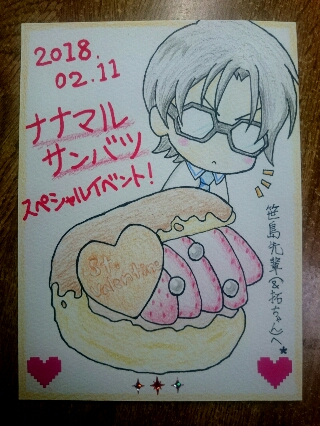 2018.
02.11
ナナマル
サンバツ
スペシャルイベント!
笹島先輩&拓ちゃんへ★